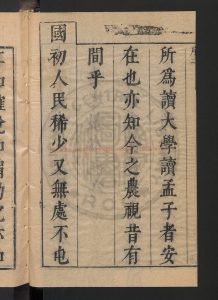 所爲讀大學讀孟子者安
在也亦知今之農視昔有
間乎
國初人民稀少又無處不屯